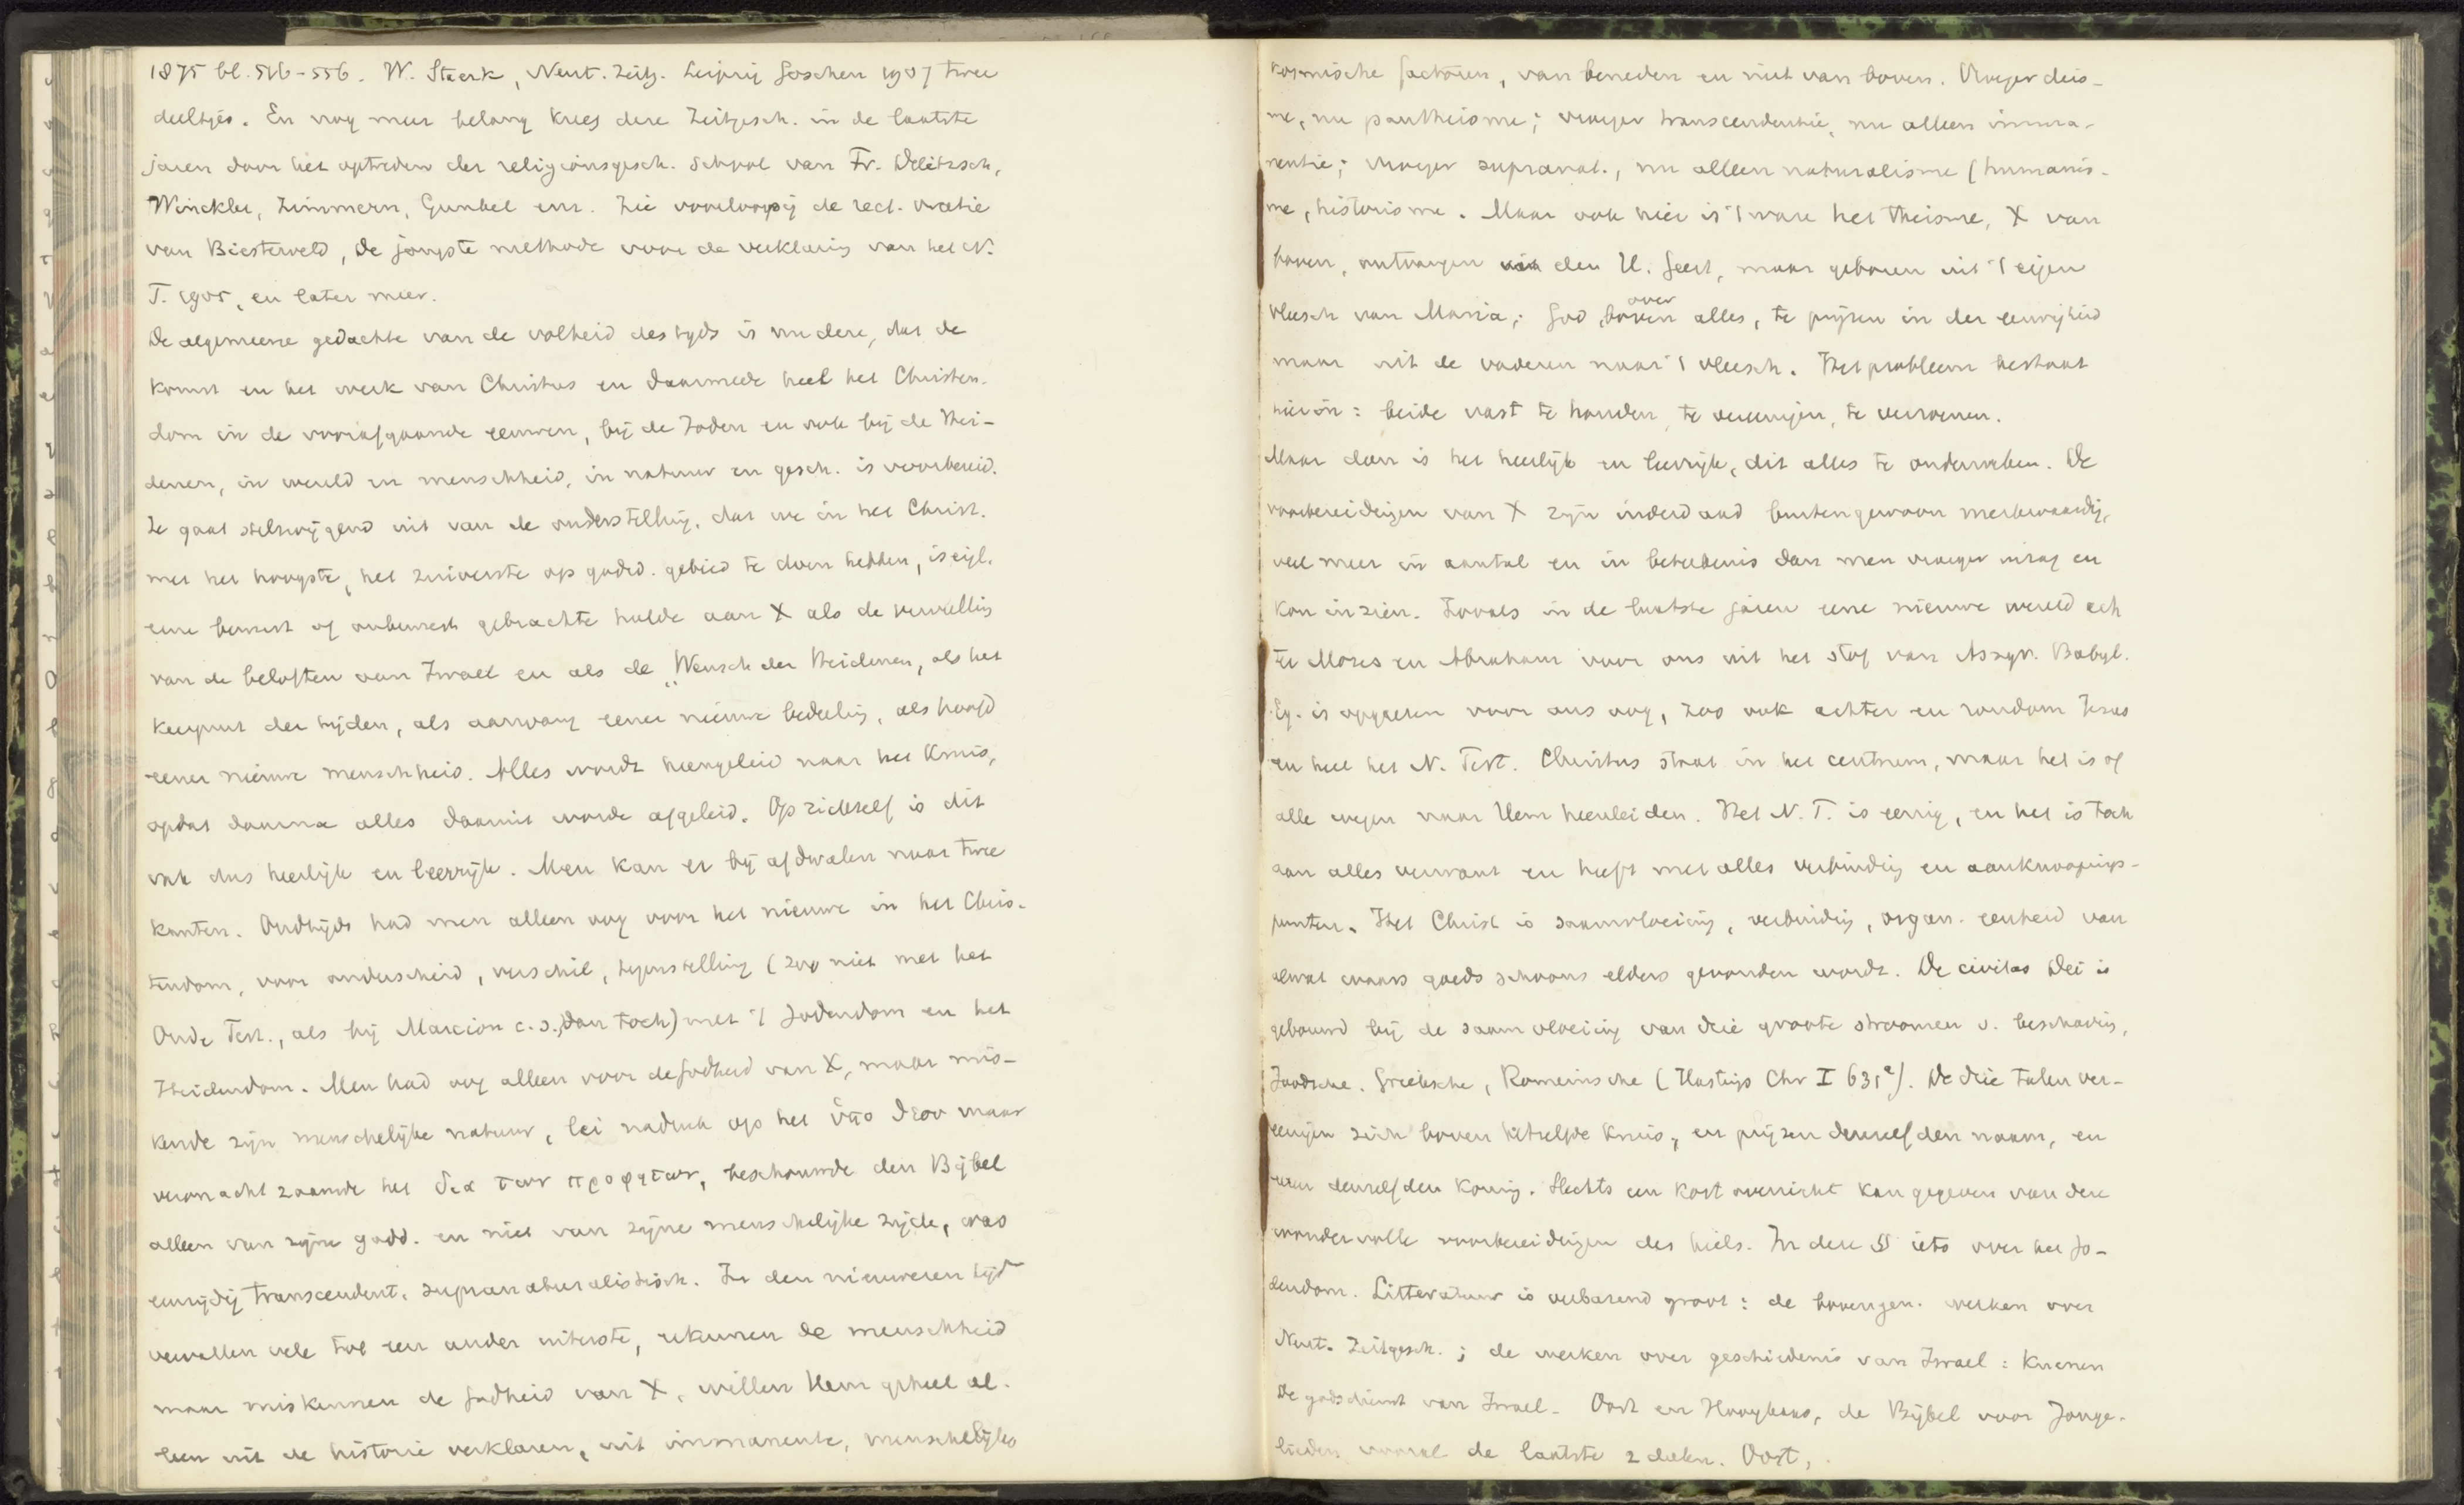 1875 bl. 516-556. W. Staerk, Neut. Zeitg. Leipzig Goschen 1907 twee
deeltjes. En nog meer belang kreeg deze Zeitgesch. in de laatste
jaren door het optreden der religionsgesch. school van Fr. Delitzsch,
Winckler, Zimmern, Gunkel enz. Zie voorloopig de rect. oratie
van Biesterveld, De jongste methode voor de verklaring van het N.
T. 1905, en later meer.
De algemeene gedachte van de volheid des tyds is nu deze, dat de
komst en het werk van Christus en daarmede heel het Christen-
dom in de voorafgaande eeuwen, bij de Joden en ook bij de Hei-
denen, in wereld en menschheid, in natuur en gesch. is voorbereid.
Ze gaat stelzwijgend uit van de onderstelling, dat we in het Christ.
met het hoogste, het zuiverste op godsd. gebied te doen hebben, is eigl.
eene bewust of onbewust gebrachte hulde aan X als de vervulling
van de beloften van Israel en als de „Wensch der Heidenen, als het
keerpunt der tijden, als aanvang eener nieuwe bedeeling, als hoofd
eener nieuwe menschheid. Alles wordt heengeleid naar het Kruis,
opdat daarna alles daaruit worde afgeleid. Op zichzelf is dit
ook dus heerlijk en leerrijk. Men kan er bij afdwalen naar twee
kanten. Oudtijds had men alleen oog voor het nieuwe in het Chris-
tendom, voor onderscheid, verschil, tegenstelling (zoo niet met het
Oude Test., als bij Marcion c.s., dan toch) met 't Jodendom en het
Heidendom. Men had oog alleen voor de Godheid van X, maar mis-
kende zijn menschelijke natuur, lei nadruk op het ὑπο θεου maar
veronachtzaamde het δια των προφητων, beschouwde den Bijbel
alleen van zijne godd. en niet van zijne menschelijke zijde, was
eenzijdig transcendent, supranaturalistisch. In den nieuweren tijd
vervallen vele tot een ander uiterste, erkennen de menschheid
maar miskennen de Godheid van X, willen Hem geheel al-
leen uit de historie verklaren, uit immanente, menschelijke
kosmische factoren, van beneden en niet van boven. Vroeger deis-
me, nu pantheisme; vroeger transcendentie, nu alleen imma-
nentie; vroeger supranat., nu alleen naturalisme (humanis-
me, historisme. Maar ook hier is 't ware het theisme, X van
boven, ontvangen van den H. Geest, maar geboren uit 't eigen
vleesch van Maria; God, boven over alles, te prijzen in der eeuwigheid
maar uit de vaderen naar 't vleesch. Het probleem bestaat
hierin: beide vast te houden, te vereenigen, te verzoenen.
Maar dan is het heerlijk en leerrijk, dit alles te onderzoeken. De
voorbereidingen van X zijn inderdaad buitengewoon merkwaardig,
veel meer in aantal en in beteekenis dan men vroeger inzag en
kon inzien. Zooals in de laatste jaren eene nieuwe wereld ach
ter Mozes en Abraham voor ons uit het stof van Assyr. Babyl.
Eg. is opgerezen voor ons oog, zoo ook achter en rondom Jezus
en heel het N. Test. Christus staat in het centrum, maar het is of
alle wegen naar Hem heenleiden. Het N. T. is eenig, en het is toch
aan alles verwant en heeft met alles verbinding en aanknoopings-
punten. Het Christ is saamvloeiing, verbinding, organ. eenheid van
alwat waars goeds schoons elders gevonden wordt. De civitas Dei is
gebouwd bij de saamvloeiing van drie groote stroomen v. beschaving,
Joodsche, Grieksche, Romeinsche (Hastings Chr I 631ª). De drie talen ver-
eenigen zich boven hetzelfde kruis, en prijzen denzelfden naam, en
eeren denzelfden Koning. Slechts een kort overzicht kan gegeven van deze
wondervolle voorbereidingen des heils. In deze § iets over het Jo-
dendom. Litteratuur is verbazend groot: de bovengen. werken over
Neut. Zeitgesch.; de werken over geschiedenis van Israel: Kuenen
De godsdienst van Israel. Oort en Hooykaas, de Bijbel voor Jonge-
lieden vooral de laatste 2 delen. Oort,